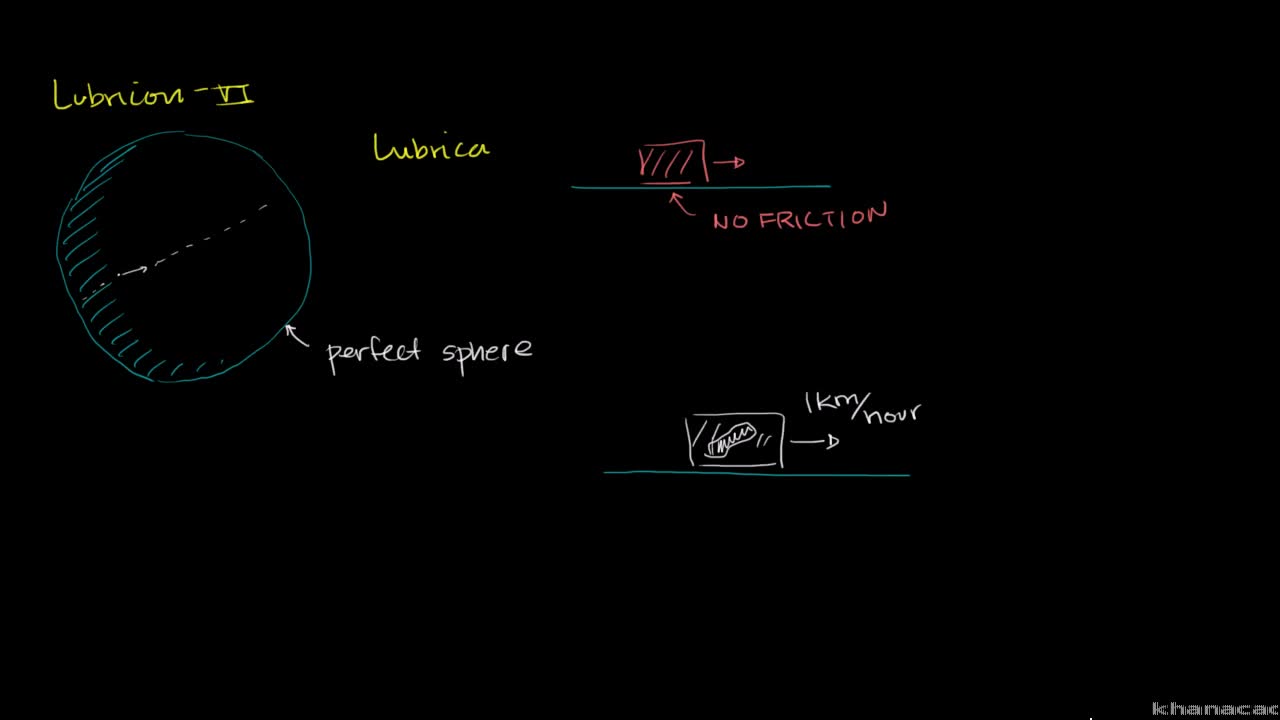 Lubricon-VI
Lubrica
NO FRICTION
perfect sphere
1km/hour
khanacac